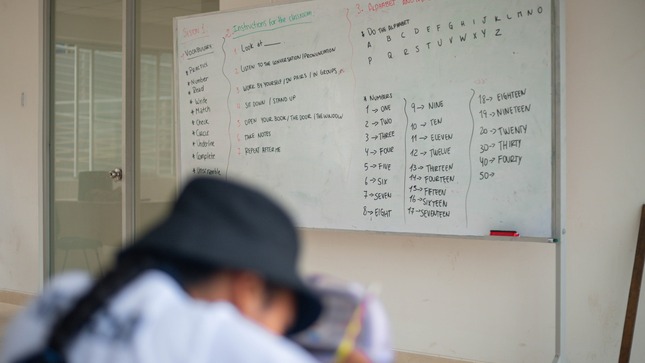 Session 1
1. Vocabulary
* Practice
* Number
* Read
* Write
* Match
* Check
* Circle
* Underline
* Complete
* Unscramble
2. Instructions for the classroom
1. Look at
2. LISTEN TO THE CONVERSATION/PRONUNTIATION
3. WORK BY YOURSELF / IN PAIRS / IN GROUPS
4. SIT DOWN / STAND UP
5. OPEN YOUR BOOK / THE DOOR / THE WINDOW
6. TAKE NOTES
7. REPEAT AFTER ME
3. ALPHABET
& DO THE ALPHABET
A B C D E F G H I J K L M N O
P Q R S T U V W X Y Z
& NUMBERS
1 → ONE
2 → TWO
3 → THREE
4 → FOUR
5 → FIVE
6 → SIX
7 → SEVEN
8 → EIGHT
9 → NINE
10 → TEN
11 → ELEVEN
12 → TWELVE
13 → THIRTEEN
14 → FOURTEEN
15 → FIFTEEN
16 → SIXTEEN
17 → SEVENTEEN
18 → EIGHTEEN
19 → NINETEEN
20 → TWENTY
30 → THIRTY
40 → FOURTY
50 →